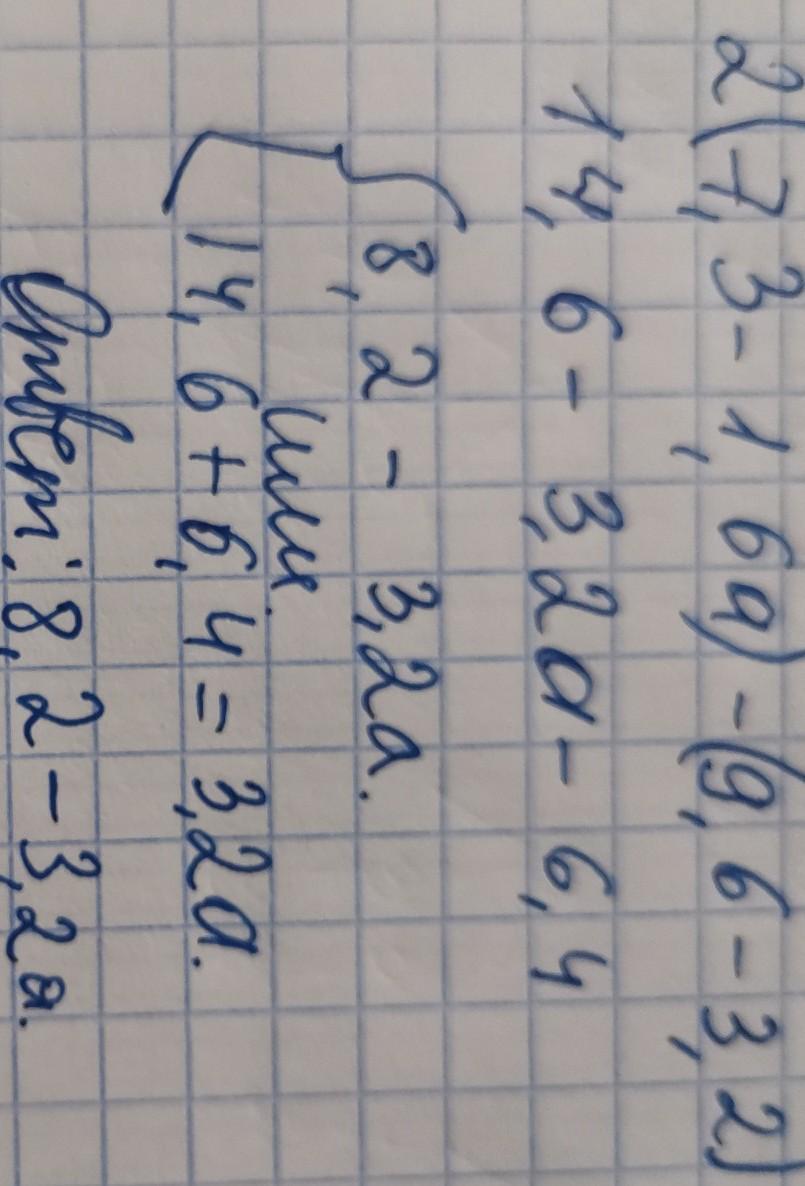 2(7,3-1,6a)-(9,6-3,2)
14,6-3,2a-6,4
8,2-3,2a.
или
14,6+6,4=3,2a.
Ответ: 8,2-3,2a.